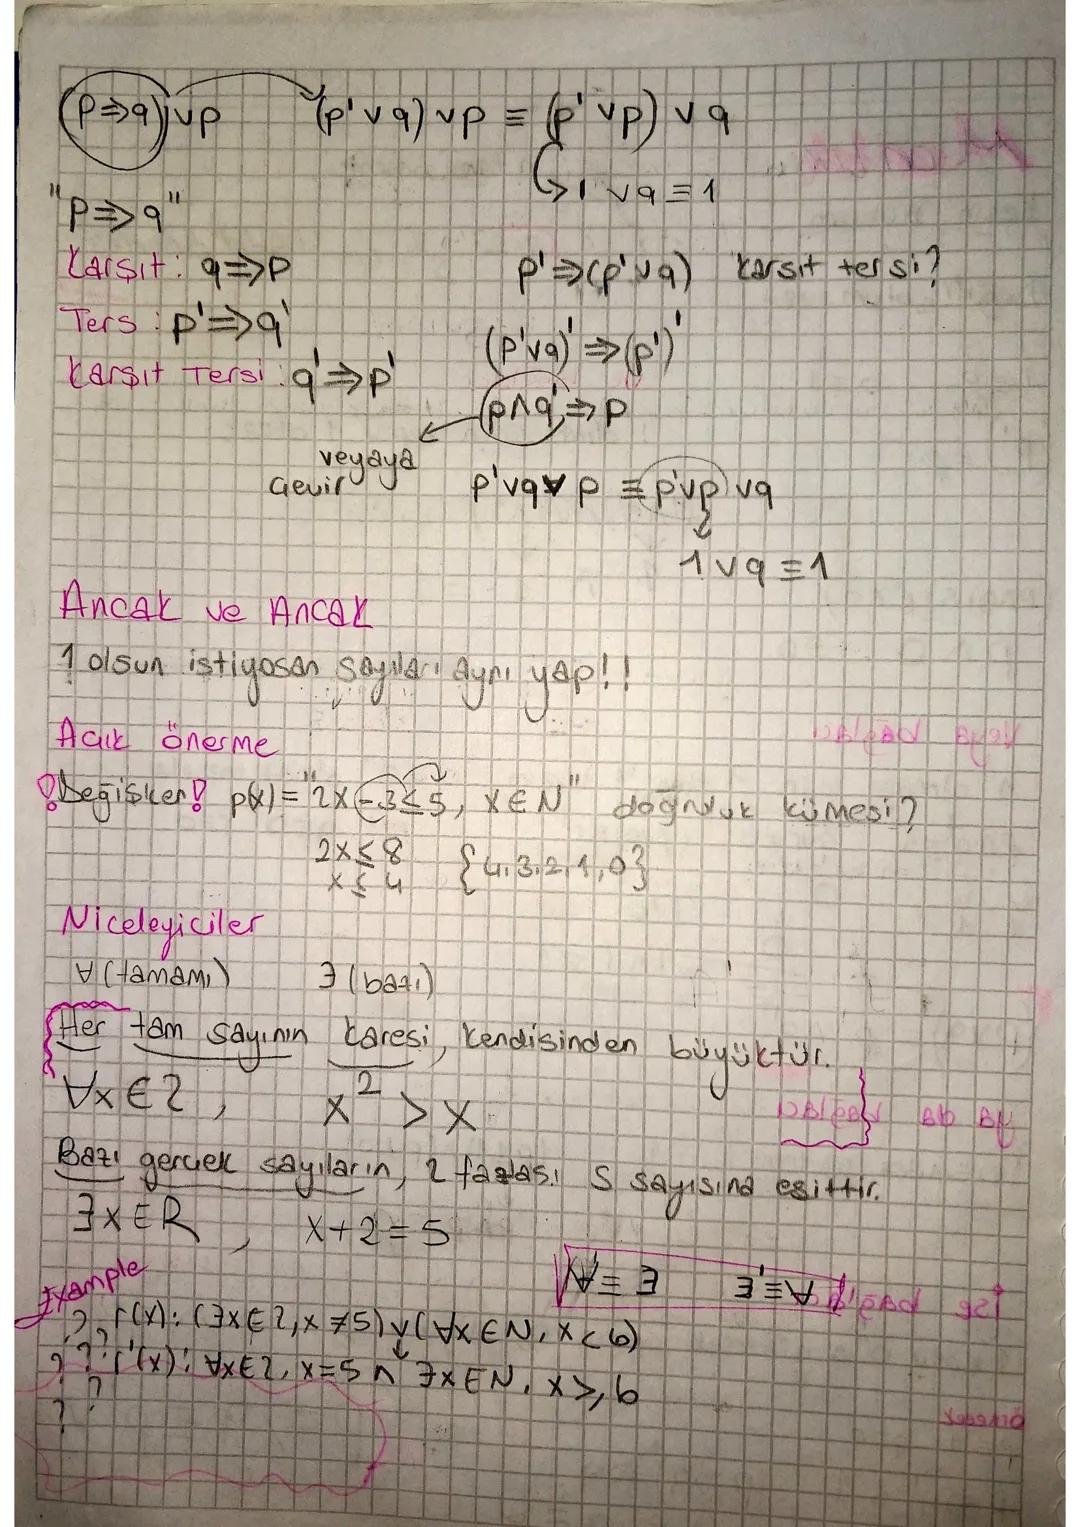 (p⇒q)∨p (p'∨q)∨p ≡ (p'∨p)∨q
1∨q≡1
"P⇒q"
Karşıt: q⇒p
p'⇒(p'∨q) karşıt tersi?
Ters: p'⇒q'
(p'∨q)'⇒(p')'
Karşıt Tersi: q'⇒p'
p∧q'⇒p
veyaya
çevir
p'∨q∨p ≡ p'∨p∨q
1∨q≡1
Ancak ve Ancak
1 olsun istiyosan sayıları aynı yap!!
Açık önerme
!Değişken! p(x)="2x-3≤5, x∈N" doğruluk kümesi?
2x≤8 {4,3,2,1,0}
x≤4
Niceleyiciler
∀(tamamı) ∃(bazı)
Her tam sayının karesi, kendisinden büyüktür.
∀x∈Z, x²>x
Bazı gerçek sayıların, 2 fazlası 5 sayısına eşittir.
∃x∈R, x+2=5
∀'≡∃ ∃'≡∀
Example
? r(x): (∃x∈Z, x≠5)∨(∀x∈N, x<6)
? ? ? r'(x): ∀x∈Z, x=5 ∧ ∃x∈N, x≥6
? ?